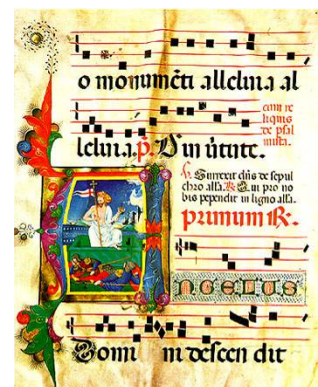 o monumēti alleluia al
cum re
liquis
de psal
mista.
leluia. p̄. D in ūtute.
℣. Surrexit dñs de sepul
chro alľa. ℟. Qui pro no
bis pependit in ligno alľa.
primum ℟.
NGELUS
Domi ni descen dit